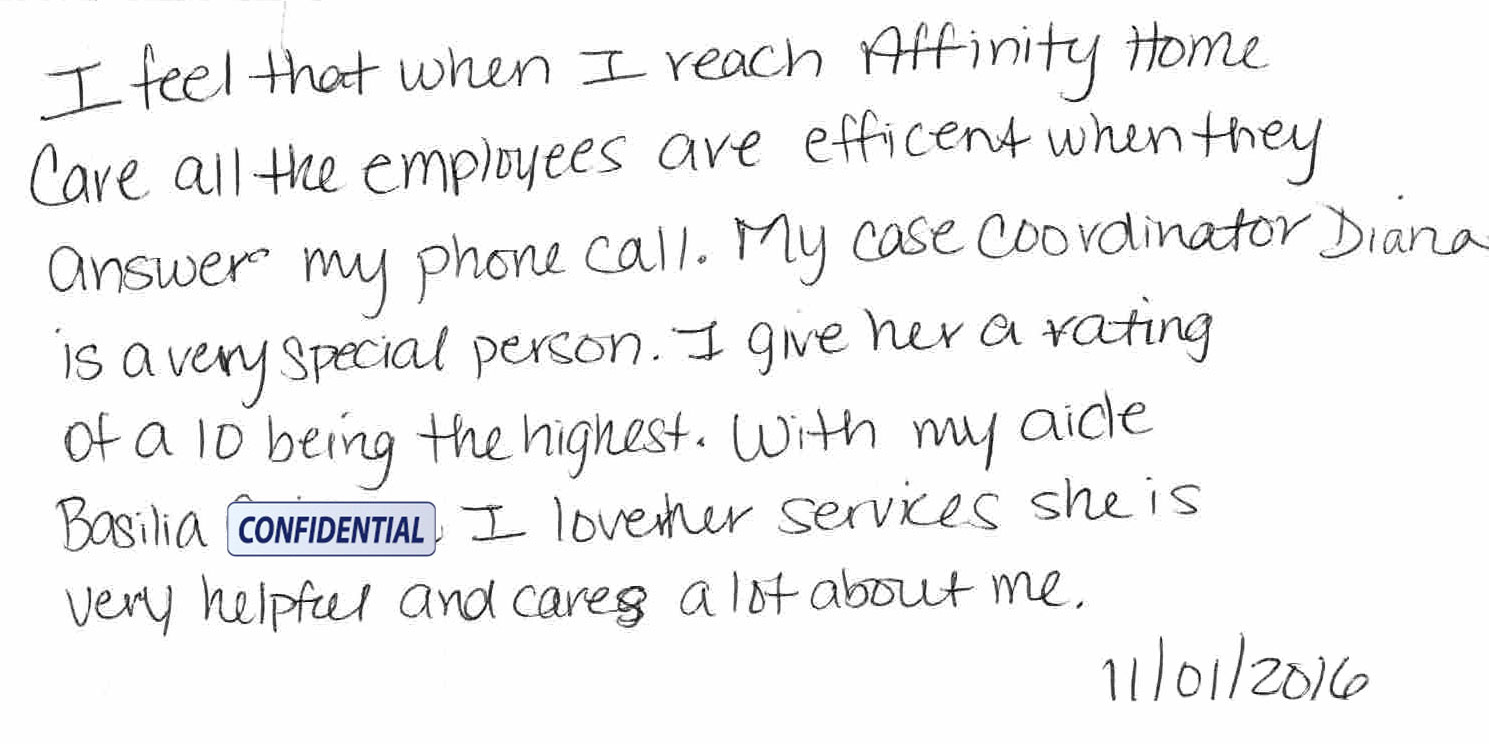 I feel that when I reach Affinity Home
Care all the employees are efficent when they
answer my phone call. My case coordinator Diana
is a very special person. I give her a rating
of a 10 being the highest. With my aide
Basilia CONFIDENTIAL I love her services she is
very helpful and cares a lot about me.
11/01/2016